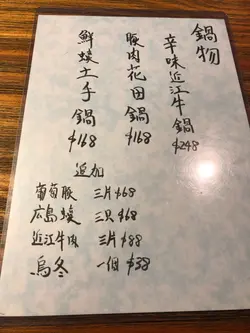 鍋物
辛味近江牛鍋
$248
豚肉花田鍋
$168
鮮蠔土手鍋
$168
追加
葡萄豚 三片$68
広島蠔 三只$68
近江牛肉 三片$88
烏冬 一個$38